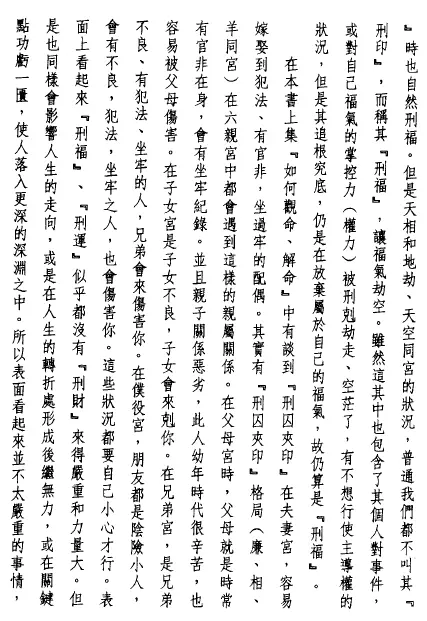 』時也自然刑福。但是天相和地劫、天空同宮的狀況，普通我們都不叫其『
刑印』，而稱其『刑福』，讓福氣劫空。雖然這其中也包含了其個人對事件，
或對自己福氣的掌控力（權力）被刑剋劫走、空茫了，有不想行使主導權的
狀況，但是其追根究底，仍是在放棄屬於自己的福氣，故仍算是『刑福』。
在本書上集『如何觀命、解命』中有談到『刑囚夾印』在夫妻宮，容易
嫁娶到犯法、有官非，坐過牢的配偶。其實有『刑囚夾印』格局（廉、相、
羊同宮）在六親宮中都會遇到這樣的親屬關係。在父母宮時，父母就是時常
有官非在身，會有坐牢紀錄。並且親子關係惡劣，此人幼年時代很辛苦，也
容易被父母傷害。在子女宮是子女不良，子女會來剋你。在兄弟宮，是兄弟
不良、有犯法、坐牢的人，兄弟會來傷害你。在僕役宮，朋友都是陰險小人，
會有不良，犯法，坐牢之人，也會傷害你。這些狀況都要自己小心才行。表
面上看起來『刑福』、『刑運』似乎都沒有『刑財』來得嚴重和力量大。但
是也同樣會影響人生的走向，或是在人生的轉折處形成後繼無力，或在關鍵
點功虧一匱，使人落入更深的深淵之中。所以表面看起來並不太嚴重的事情，